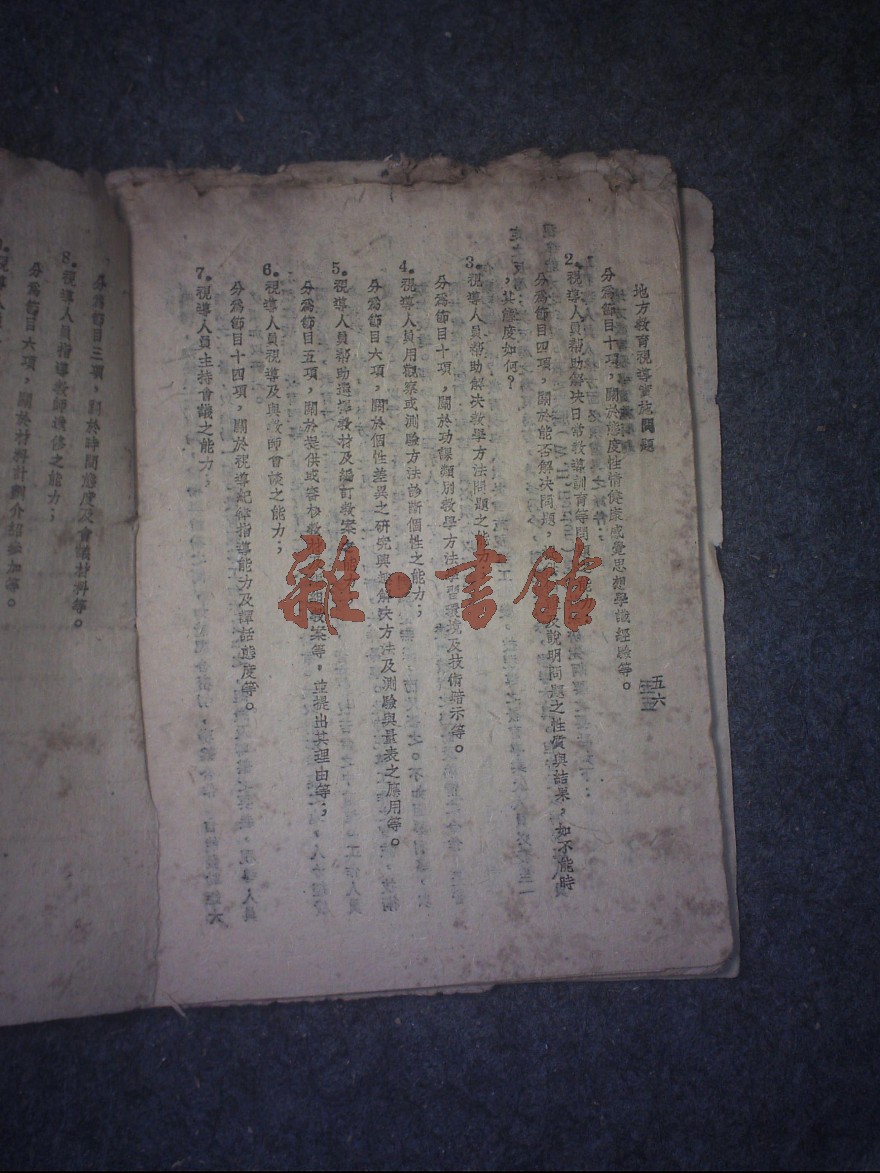 地方教育視導實施問題
五六
分為節目十項，關於態度性情健康感覺思想學識經驗等。
2.視導人員幫助解決日常教導訓育等問題之能
分為節目四項，關於能否解決問題，及說明問題之性質與結果，如不能時
，其態度如何？
3.視導人員幫助解決教學方法問題之能
分為節目十項，關於功課類別教學方法學習環境及技術暗示等。
4.視導人員用觀察或測驗方法診斷個性之能力；
分為節目六項，關於個性差異之研究與解決方法及測驗與量表之應用等。
5.視導人員幫助選擇教材及編訂教案
分為節目五項，關於提供或審核教案等，並提出其理由等；
6.視導人員視導及與教師會談之能力；
分為節目十四項，關於視導紀律指導能力及談話態度等。
7.視導人員主持會議之能力；
分為節目三項，關於時間態度及會議材料等。
8.視導人員指導教師進修之能力；
分為節目六項，關於材料計劃介紹參加等。
視導人員
雜·書館